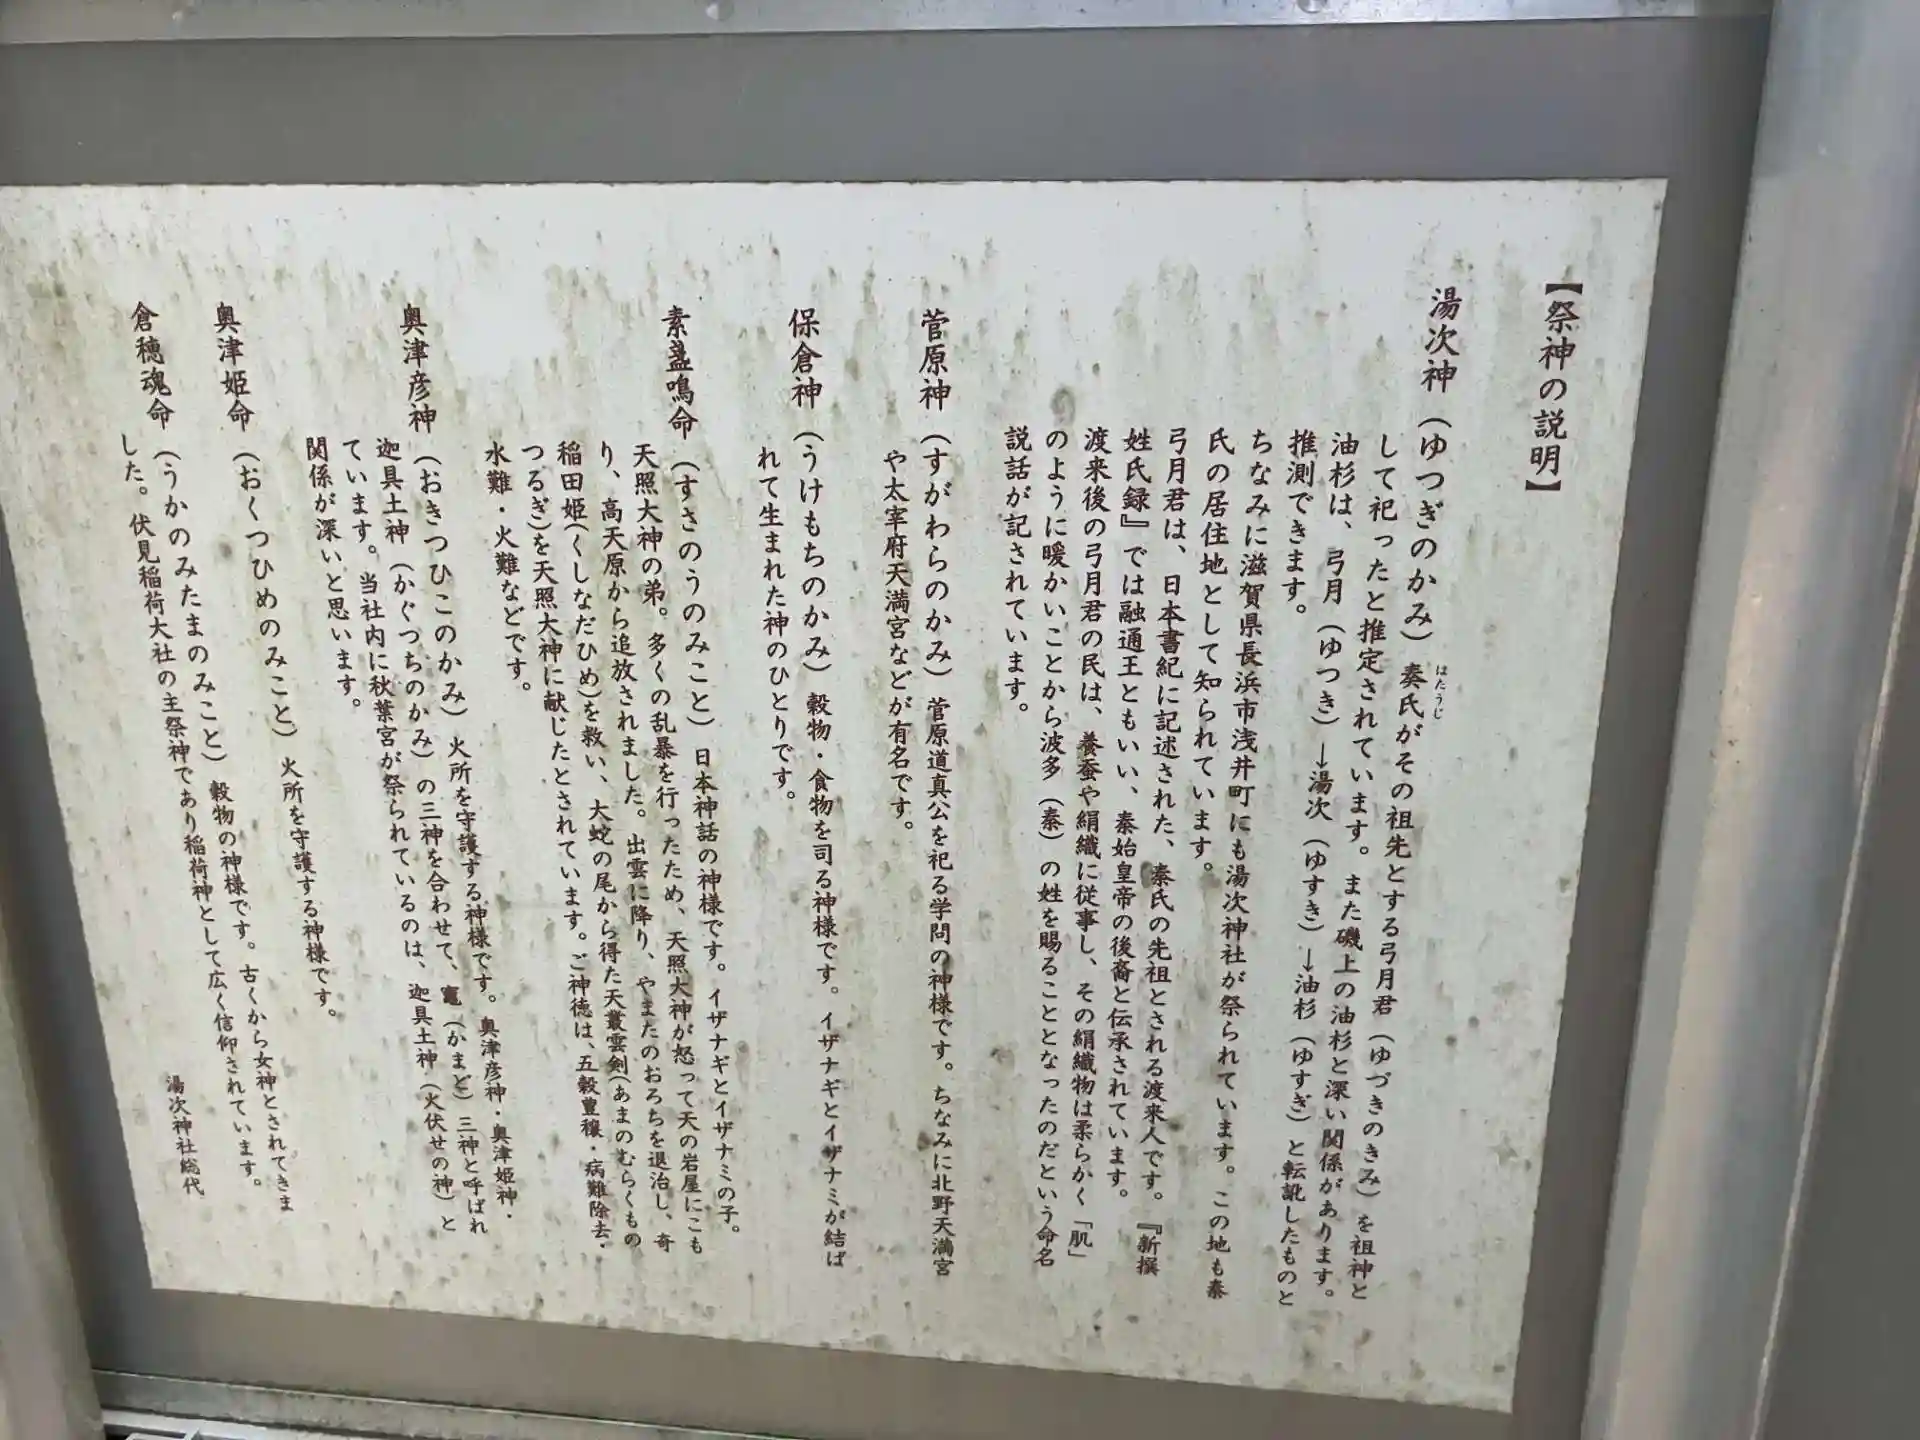 【祭神の説明】
湯次神（ゆつぎのかみ）秦氏がその祖先とする弓月君（ゆづきのきみ）を祖神と
はたうじ
して祀ったと推定されています。また磯上の油杉と深い関係があります。
油杉は、弓月（ゆつき）→湯次（ゆすき）→油杉（ゆすぎ）と転訛したものと
推測できます。
ちなみに滋賀県長浜市浅井町にも湯次神社が祭られています。この地も秦
氏の居住地として知られています。
弓月君は、日本書紀に記述された、秦氏の先祖とされる渡来人です。『新撰
姓氏録』では融通王ともいい、秦始皇帝の後裔と伝承されています。
渡来後の弓月君の民は、養蚕や絹織に従事し、その絹織物は柔らかく「肌」
のように暖かいことから波多（秦）の姓を賜ることとなったのだという命名
説話が記されています。
菅原神（すがわらのかみ）菅原道真公を祀る学問の神様です。ちなみに北野天満宮
や太宰府天満宮などが有名です。
保倉神（うけもちのかみ）穀物・食物を司る神様です。イザナギとイザナミが結ば
れて生まれた神のひとりです。
素盞鳴命（すさのうのみこと）日本神話の神様です。イザナギとイザナミの子。
天照大神の弟。多くの乱暴を行ったため、天照大神が怒って天の岩屋にこも
り、高天原から追放されました。出雲に降り、やまたのおろちを退治し、奇
稲田姫(くしなだひめ)を救い、大蛇の尾から得た天叢雲剣(あまのむらくもの
つるぎ)を天照大神に献じたとされています。ご神徳は、五穀豊穣・病難除去・
水難・火難などです。
奥津彦神（おきつひこのかみ）火所を守護する神様です。奥津彦神・奥津姫神・
迦具土神（かぐつちのかみ）の三神を合わせて、竃（かまど）三神と呼ばれ
ています。当社内に秋葉宮が祭られているのは、迦具土神（火伏せの神）と
関係が深いと思います。
奥津姫命（おくつひめのみこと）火所を守護する神様です。
倉穂魂命（うかのみたまのみこと）穀物の神様です。古くから女神とされてきま
した。伏見稲荷大社の主祭神であり稲荷神として広く信仰されています。
湯次神社総代